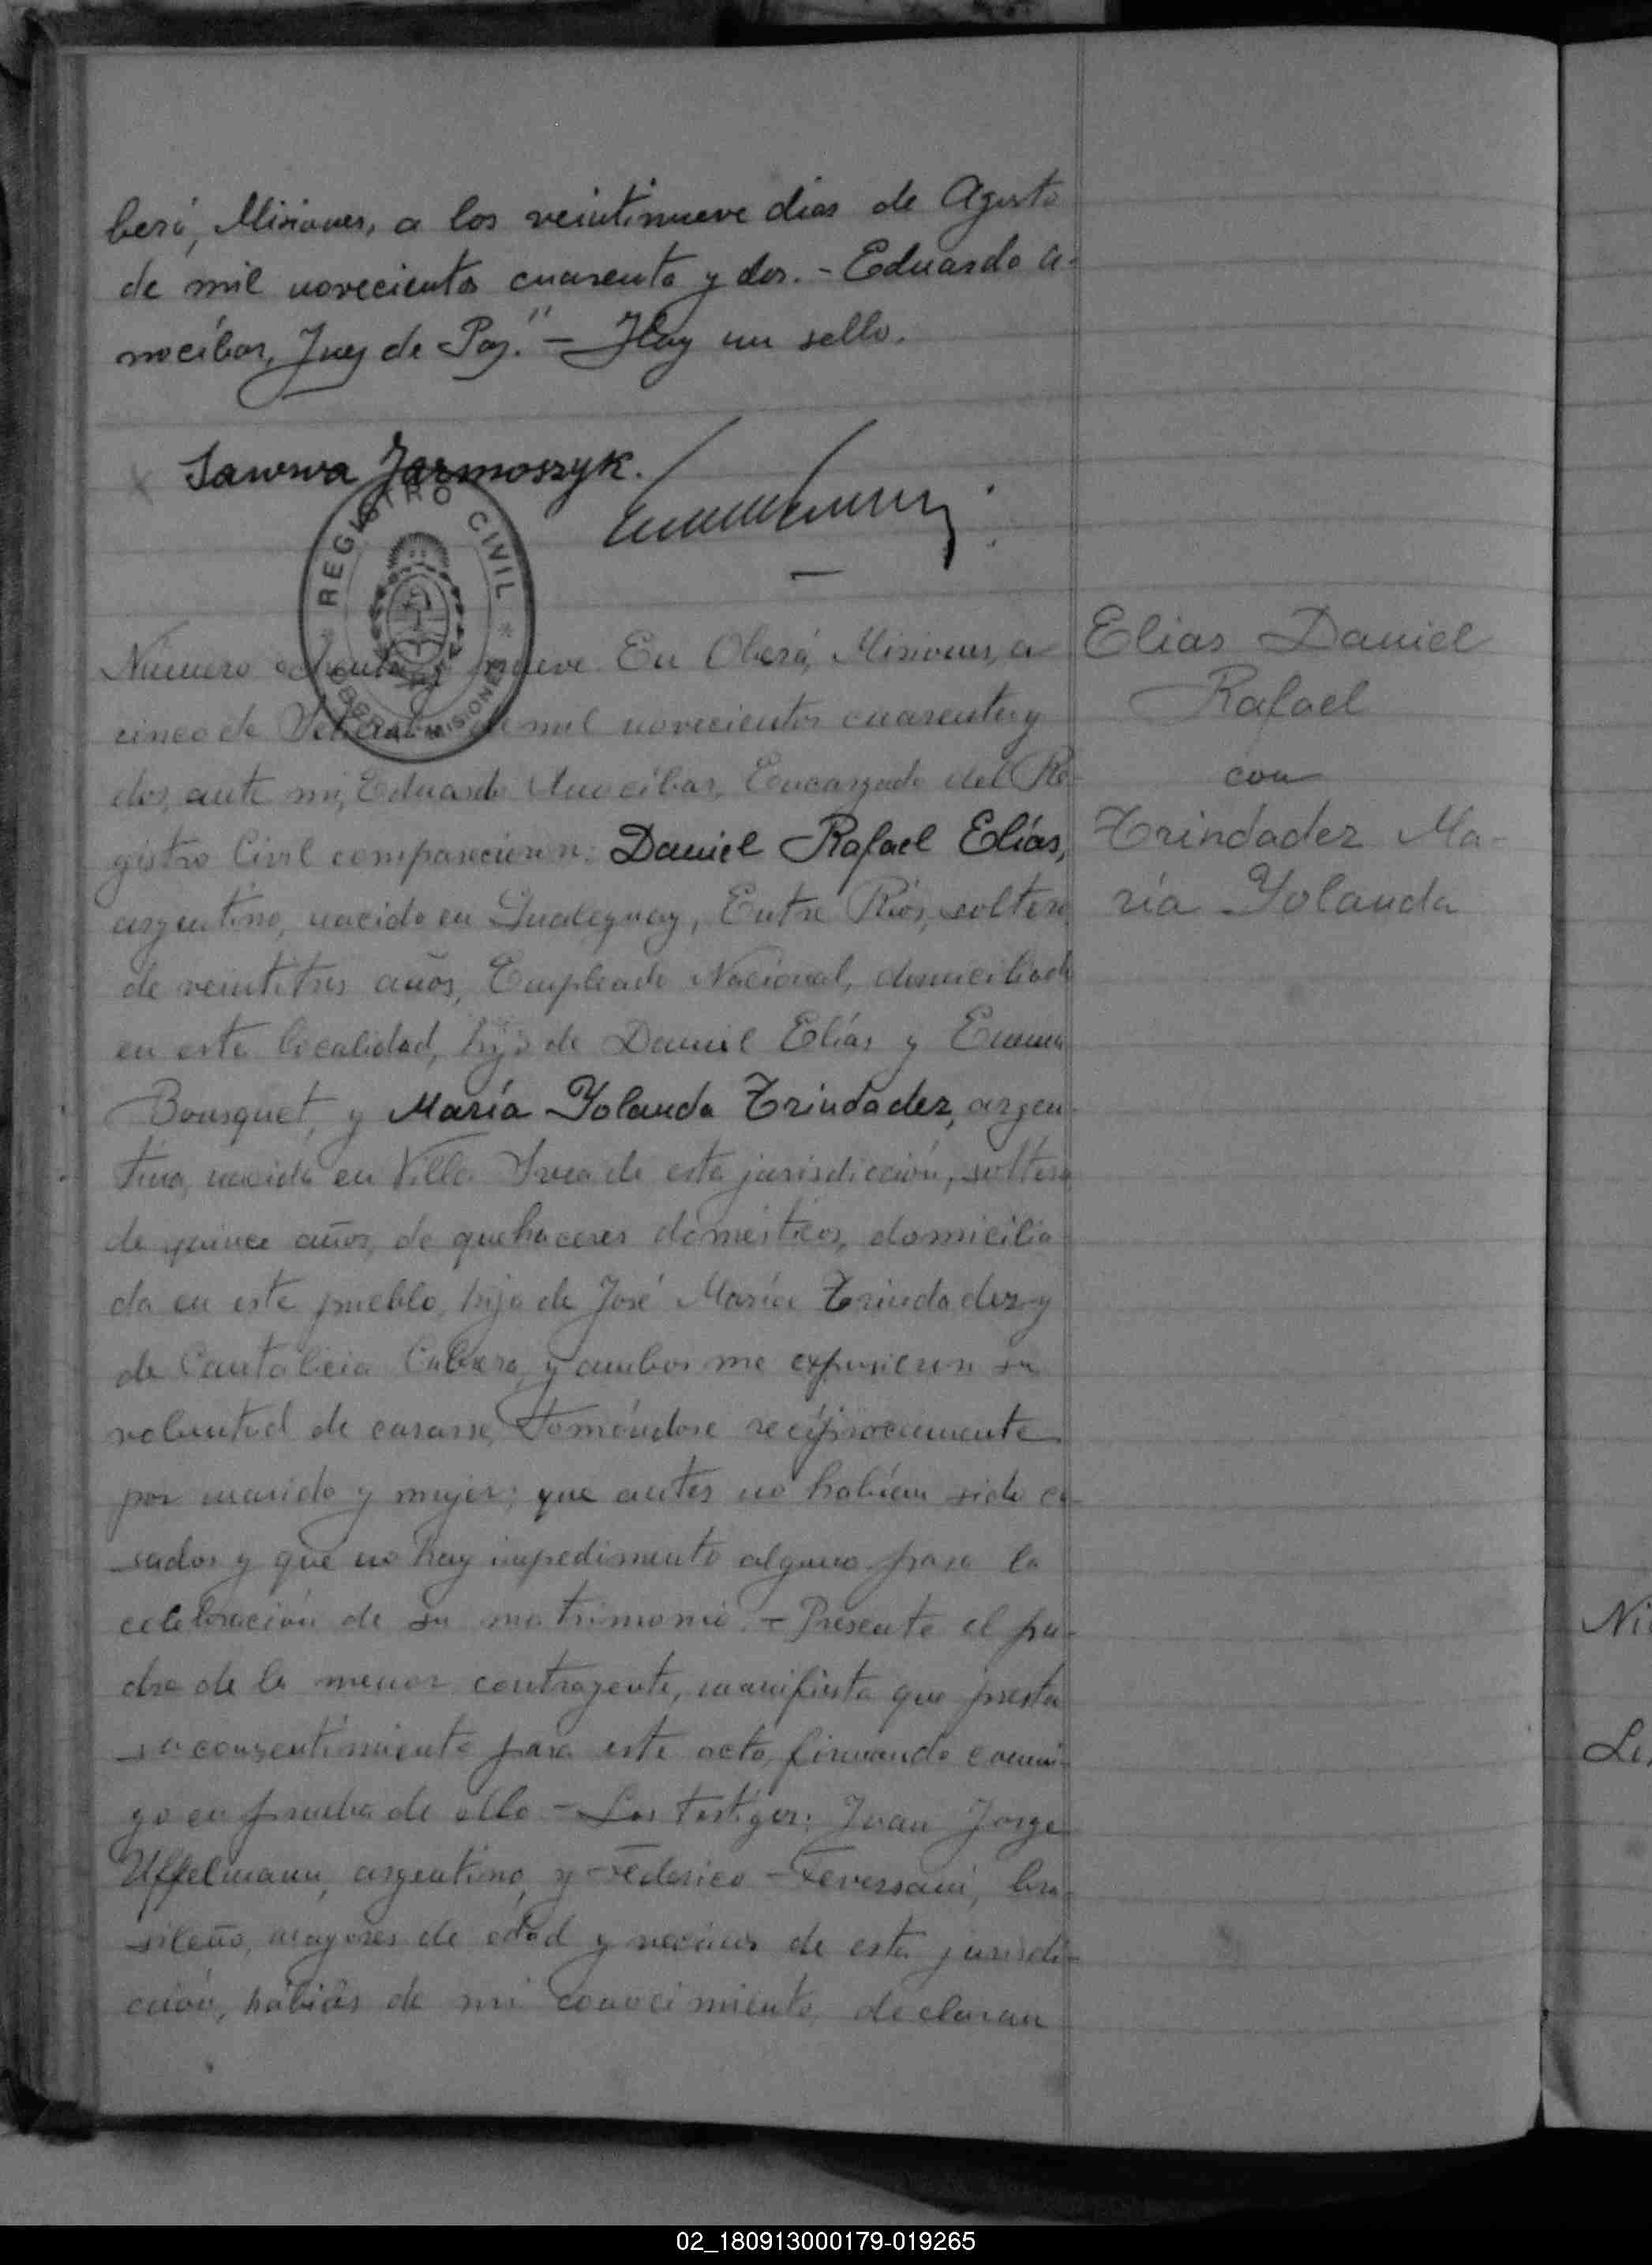 berá, Misiones, a los veintinueve dias de Agosto
de mil novecientos cuarenta y dos. - Eduardo A-
mocíbar, Juez de Paz." - Hay un sello.
Sawwa Jarmoszyk.
REGISTRO CIVIL
OBERÁ - MISIONES
Número ochenta y nueve. En Oberá, Misiones, a
cinco de Setiembre de mil novecientos cuarenta y
dos, ante mi, Eduardo Amocíbar, Encargado del Re-
gistro Civil comparecieron: Daniel Rafael Elías,
argentino, nacido en Gualeguay, Entre Ríos, soltero,
de veintitres años, Empleado Nacional, domiciliado
en esta localidad, hijo de Daniel Elías y Emma
Bousquet, y María Yolanda Trindadez, argen-
tina, nacida en Villa de esta jurisdicción, soltera
de quince años, de quehaceres domésticos, domicilia-
da en este pueblo, hija de José María Trindadez y
de Cantalicia Cabrera, y ambos me expusieron su
voluntad de casarse, tomándose recíprocamente
por marido y mujer; que antes no habían sido ca-
sados y que no hay impedimento alguno para la
celebración de su matrimonio. - Presente el pa-
dre de la menor contrayente, manifiesta que presta
su consentimiento para este acto, firmando conmi-
go en prueba de ello - Los testigos: Juan Jorge
Uffelmann, argentino, y Federico Feversani, bra-
sileño, mayores de edad y vecinos de esta jurisdi-
cción, hábiles de mi conocimiento, declaran
Elias Daniel
Rafael
con
Trindadez Ma-
ría Yolanda
02_180913000179-019265